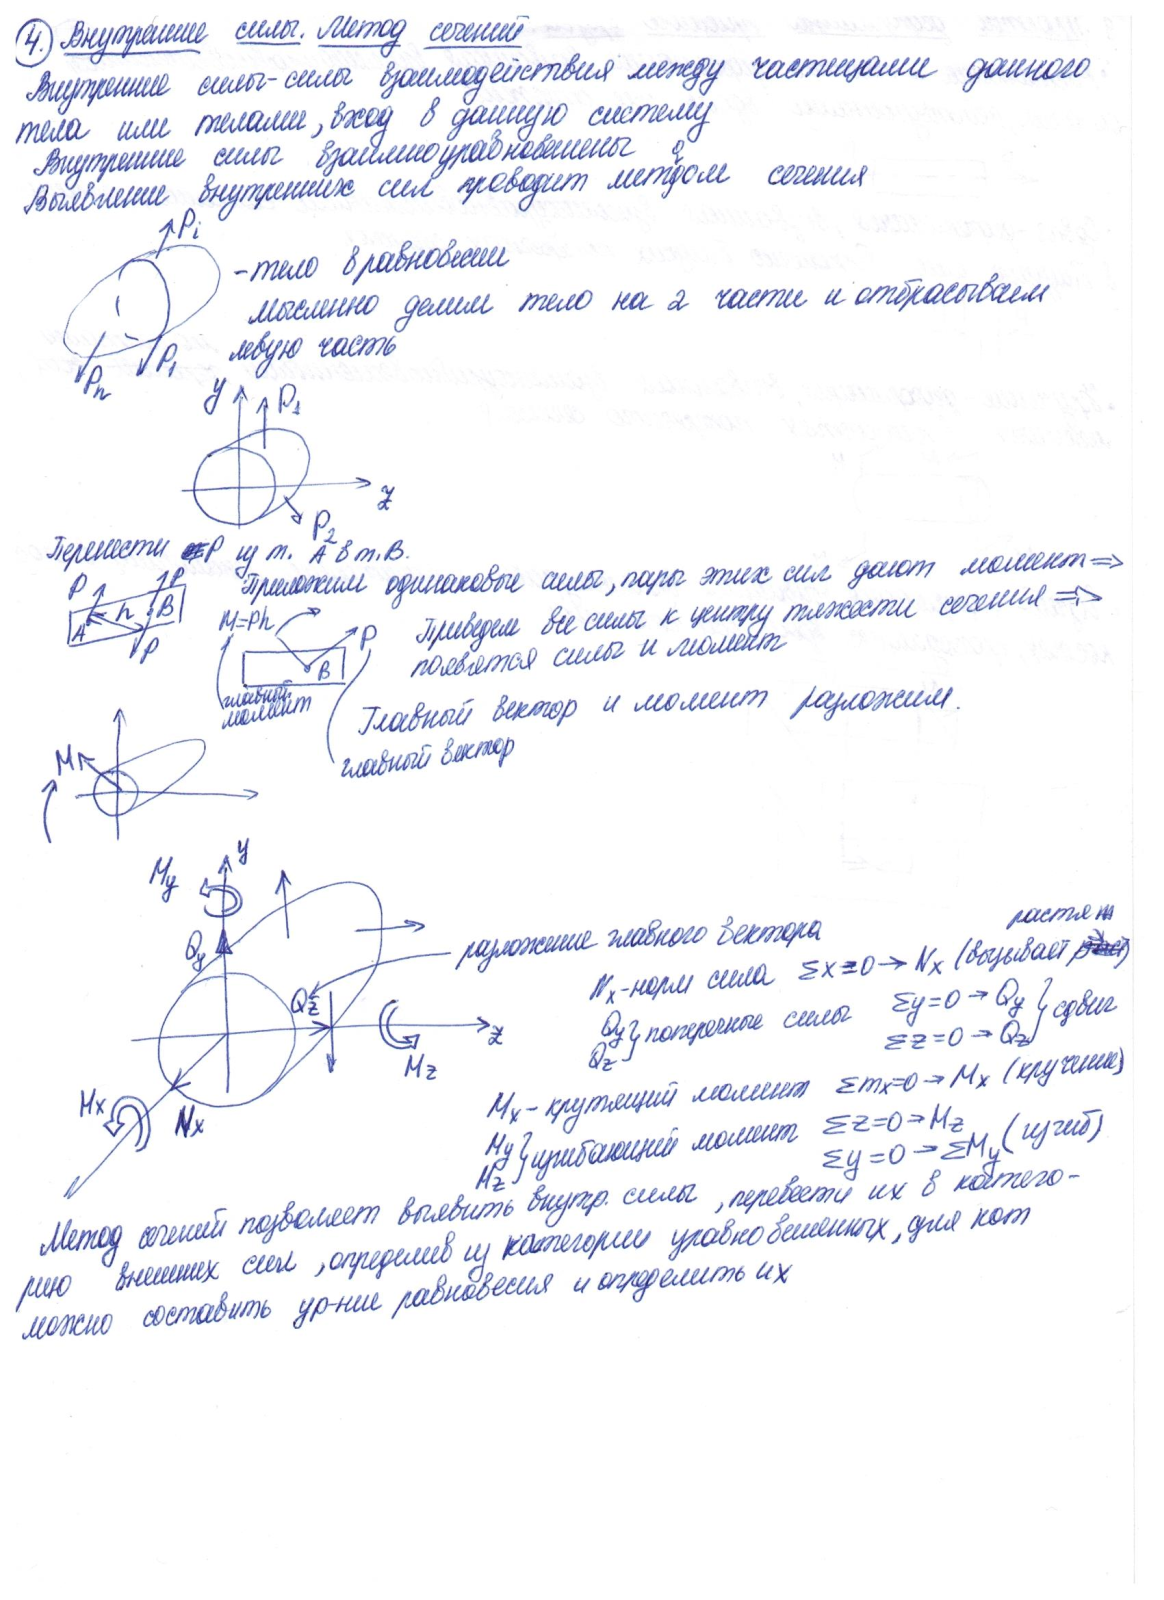 4. Внутренние силы. Метод сечений
Внутренние силы - силы взаимодействия между частицами данного
тела или телами, вход в данную систему
Внутренние силы взаимоуравновешены
Выявление внутренних сил проводит методом сечения
Pi
- тело в равновесии
мысленно делим тело на 2 части и отбрасываем
левую часть
Pn P1
y P1
z
P2
Перенести P из т. A в т. B.
P P Приложим одинаковые силы, пары этих сил дают момент ⇒
A h B M=Ph P Приведем все силы к центру тяжести сечения ⇒
P B появятся силы и момент
главный момент
Главный вектор и момент разложим.
главный вектор
M
My y
Qy
разложение главного вектора
растяж
Nx - норм сила Σx=0 → Nx (вызывает
Qz z
Qy Qz } поперечные силы Σy=0 → Qy Σz=0 → Qz } сдвиг
Mz
Mx Nx
Mx - крутящий момент Σmx=0 → Mx (кручение)
My Mz } изгибающий момент Σz=0 → Mz Σy=0 → ΣMy (изгиб)
Метод сечений позволяет выявить внутр. силы, перевести их в катего-
рию внешних сил, определив из категории уравновешенных, для кот
можно составить ур-ние равновесия и определить их